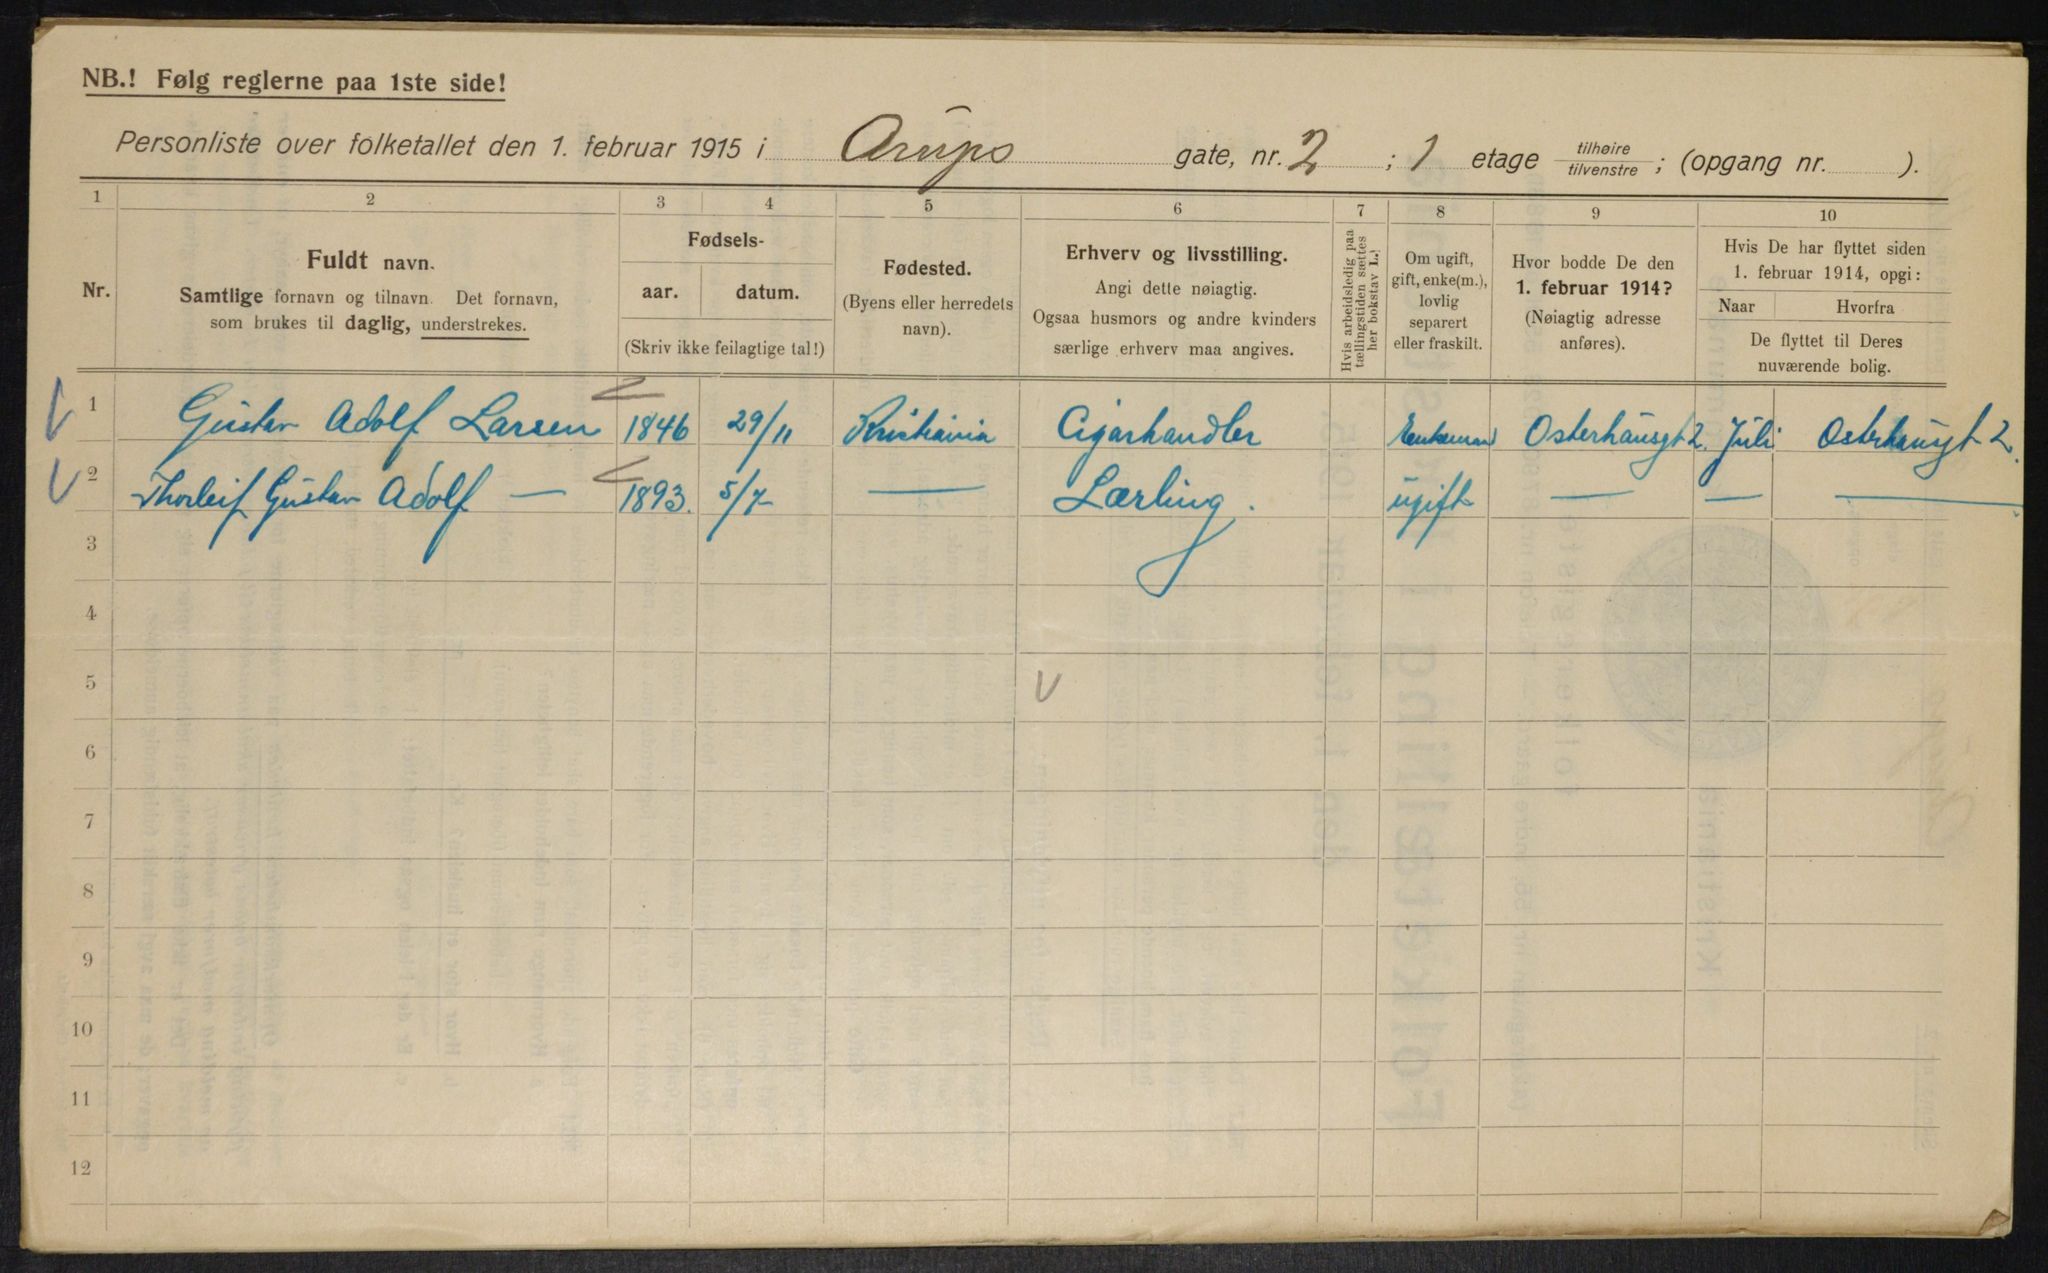 NB.! Følg reglerne paa 1ste side!
Personliste over folketallet den 1. februar 1915 i Arups gate, nr. 2 ; 1 etage tilhøire tilvenstre ; (opgang nr. ).
1 2 3 4 5 6 7 8 9 10
Nr.
Fuldt navn.
Samtlige fornavn og tilnavn. Det fornavn,
som brukes til daglig, understrekes.
Fødsels-
aar. datum.
(Skriv ikke feilagtige tal!)
Fødested.
(Byens eller herredets
navn).
Erhverv og livsstilling.
Angi dette nøiagtig.
Ogsaa husmors og andre kvinders
særlige erhverv maa angives.
Hvis arbeidsledig paa
tællingstiden sættes
her bokstav L.!
Om ugift,
gift, enke(m.),
lovlig
separert
eller fraskilt.
Hvor bodde De den
1. februar 1914?
(Nøiagtig adresse
anføres).
Hvis De har flyttet siden
1. februar 1914, opgi:
Naar Hvorfra
De flyttet til Deres
nuværende bolig.
1 Gustav Adolf Larsen 1846 29/11 Kristiania Cigarhandler Enkemand Osterhausgt 2. Juli Osterhausgt 2.
2 Thorleif Gustav Adolf — 1893. 5/7 — Lærling. ugift — — —
3
4
5
6
7
8
9
10
11
12